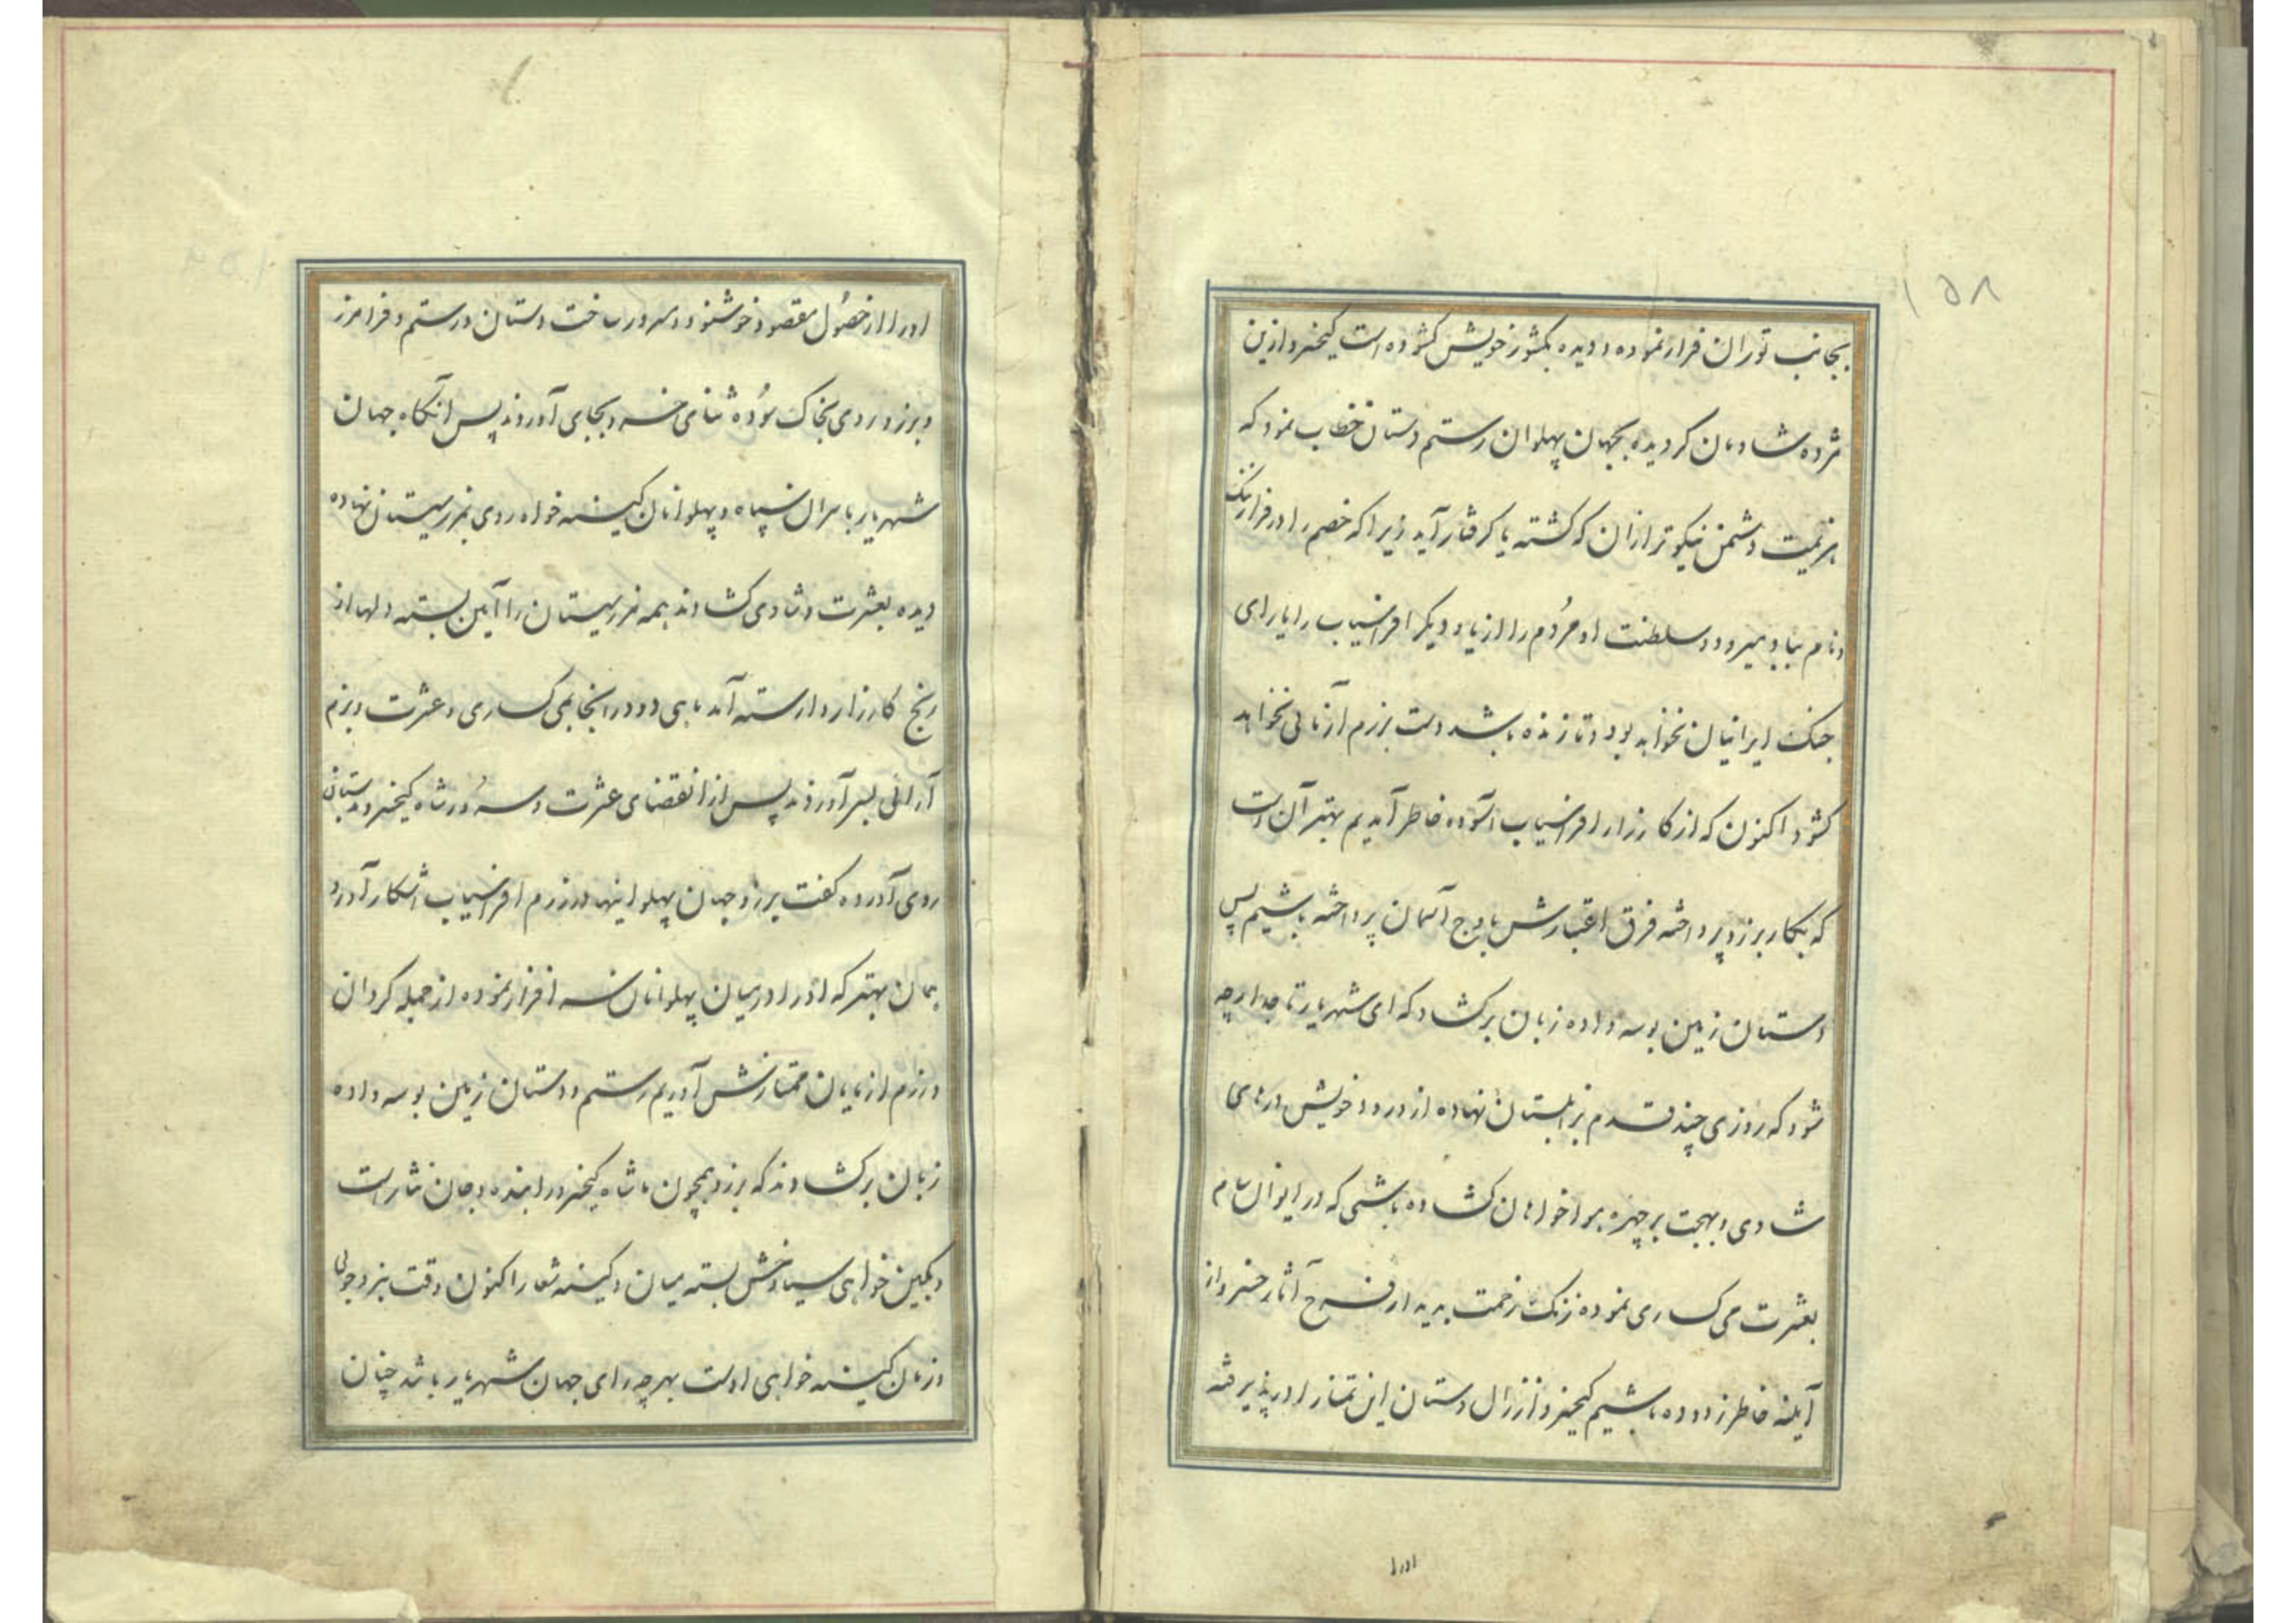 ۱۵۸
بجانب توران فرار نموده و دیده بکشور خویش کشوده است کیخسرو ازین
مژده شادمان کردیده بجهان پهلوان رستم دستان خطاب نمود که
هزیمت دشمن نیکوتر ازان که کشته یا کرفتار آید زیرا که خصم را در فرار ننک
و نام بباد میرود و سلطنت او مردم را از یاد دیکر افراسیاب را یارای
جنک ایرانیان نخواهد بود و تا زنده باشد دست برزم آزمائی نخواهد
کشود اکنون که از کارزار افراسیاب آسوده خاطر آمدیم بهتر آن است
که بکار برزو پرداخته فرق اعتبارش باوج آسمان پرداخته باشیم پس
دستان زمین بوسه داده زبان برکشاد که ای شهریار تاجدار چه
شود که روزی چند قدم بزابلستان نهاده از درود خویش درهای
شادی و بهجت بر چهره هواخواهان کشاده باشی که در ایوان سام
بعشرت می کساری نموده زنک زحمت بدیدار فرخ آثار خسرو از
آینه خاطر زدوده باشیم کیخسرو از زال دستان این تمنا را در پذیرفته
اورا
اورا از حصول مقصود خوشنود و مسرور ساخت دستان و رستم و فرامرز
و برزو روی بخاک سوده ثنای خسرو بجای آوردند پس آنکاه جهان
شهریار با سران سپاه و پهلوانان کینه خواه روی بمرز سیستان نهاده
دیده بعشرت و شادی کشادند همه مرز سیستان را آیین بسته دلها از
رنج کارزار وارسته آمد ماهی دو در انجا بمی کساری و عشرت و بزم
آرائی بسر آوردند پس از انقضای عشرت و سرور شاه کیخسرو بدستان
روی آورده کفت برزو جهان پهلوانیها در رزم افراسیاب آشکار آورد
همان بهتر که او را در میان پهلوانان سرافراز نموده از جمله کردان
و رزم ازمایان ممتازش آوریم رستم و دستان زمین بوسه داده
زبان برکشادند که برزو همچون ما شاه کیخسرو را بنده و جان نثار است
و بکین خواهی سیاوخش بسته میان و کینه شعار اکنون وقت نبرد جوئی
و زمان کینه خواهی اوست بهر چه رای جهان شهریار باشد چنان